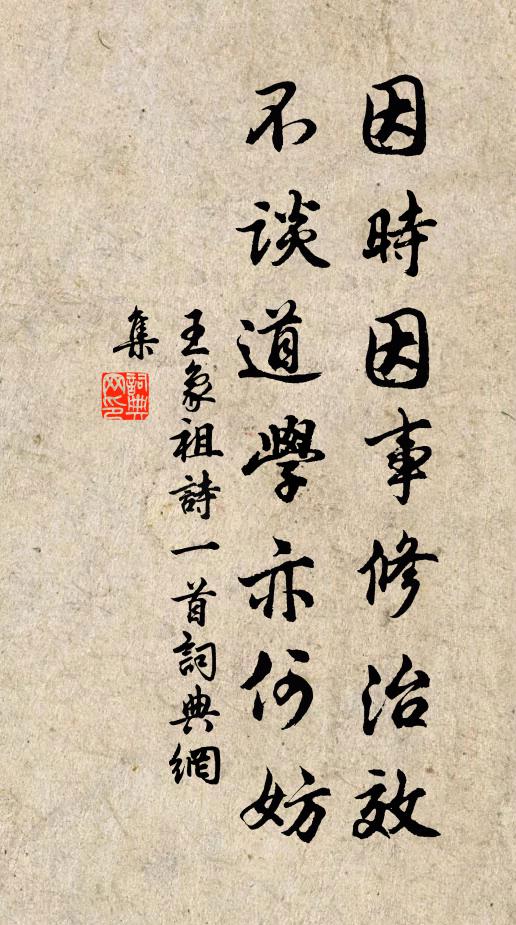 因時因事修治效
不談道學亦何妨
王象祖詩一首詞典網
集
詞典
网印